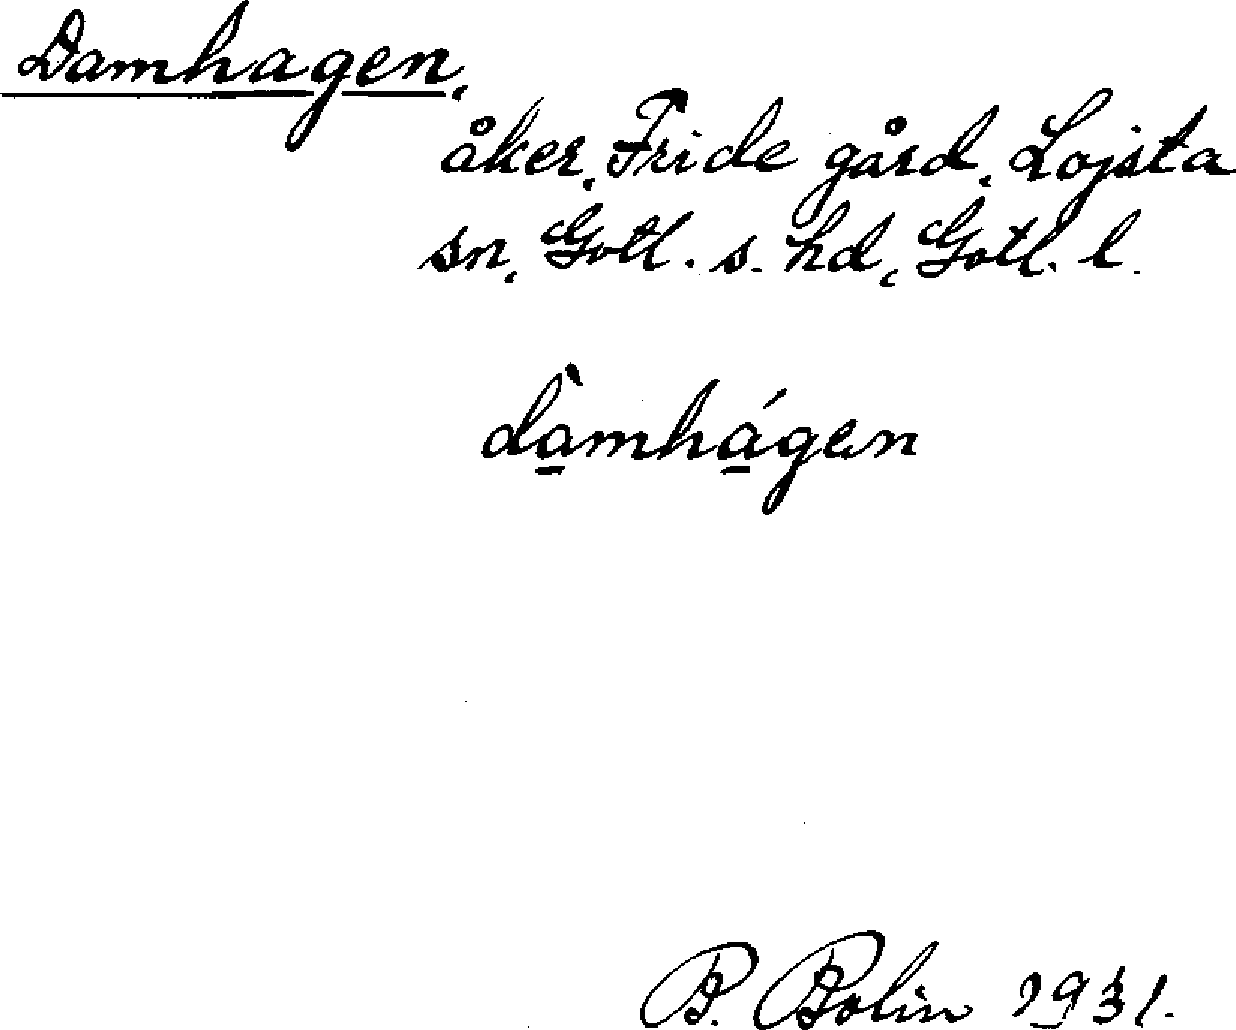 Damhagen,
åker, Fride gård, Lojsta
sn, Gotl. s. hd, Gotl. l.
dà̱mhá̱gen
B. Bolin 1931.